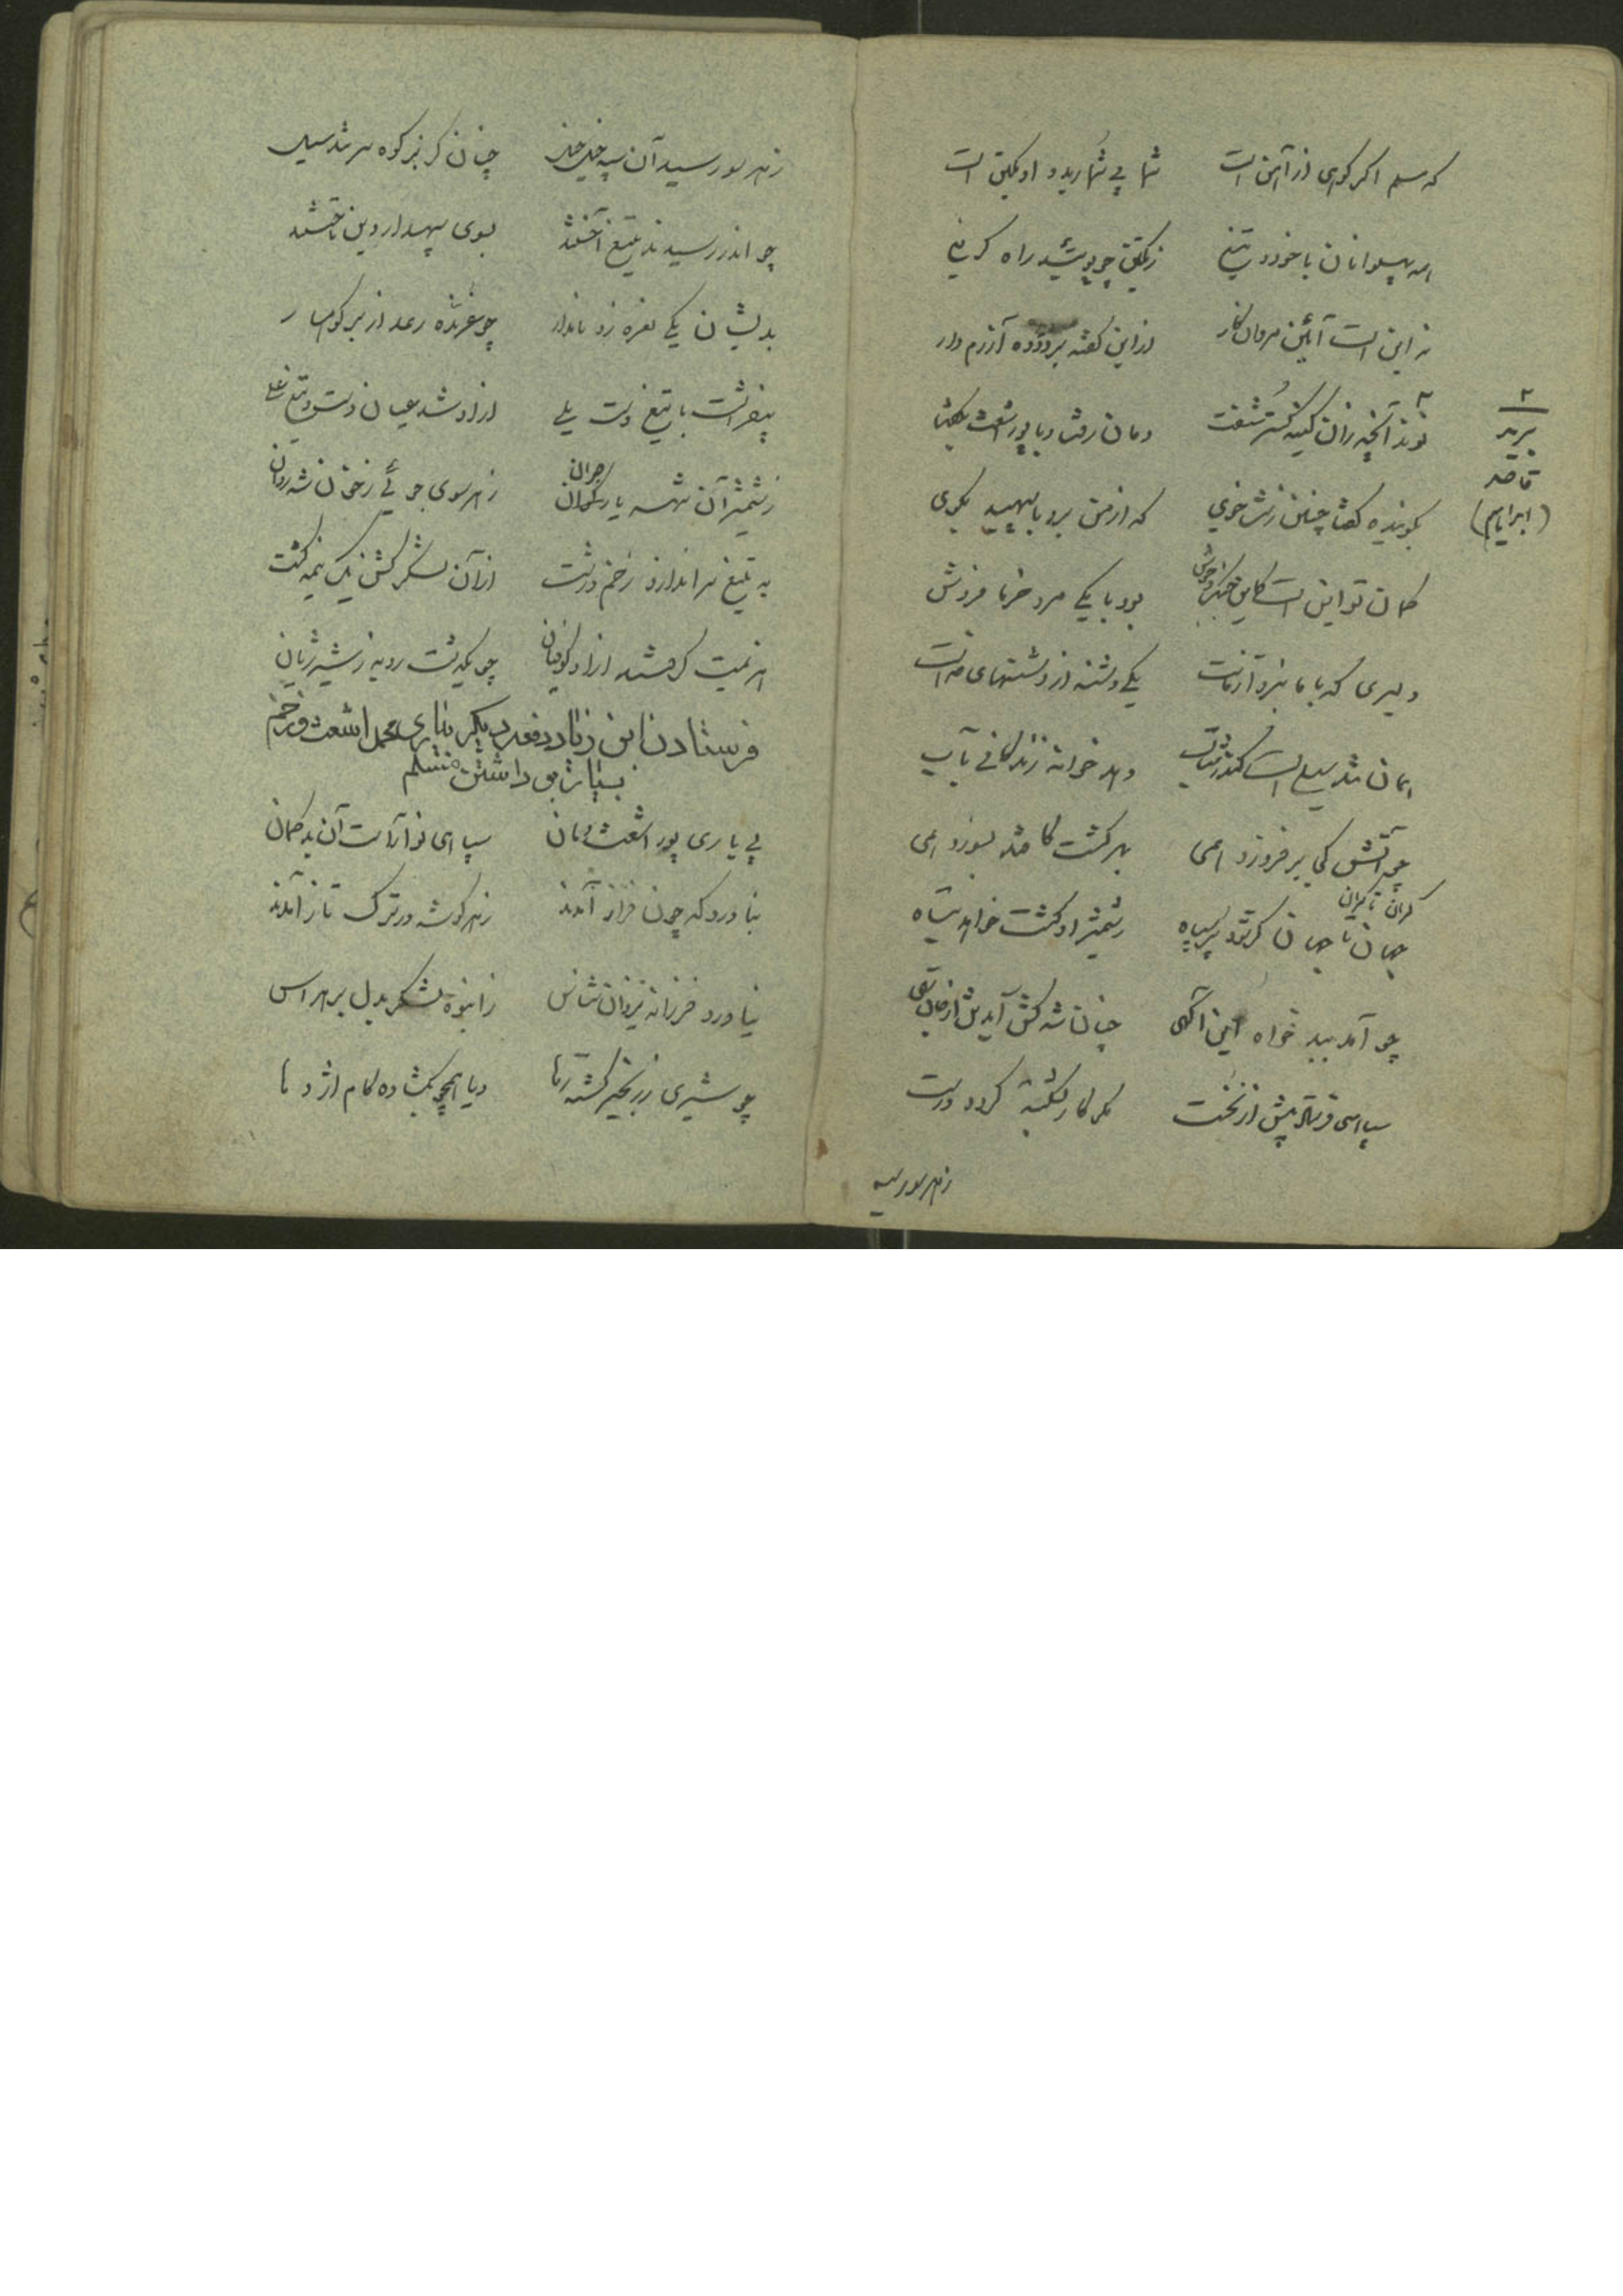 که مسلم اگر کوهی از آهن است شما بی شمارید و او یکتن است
همه پهلوانان با خود و تیغ ز یکتن چه پوشید راه گریغ
نه این است آئین مردان کار از این گفته پرورده آزرم دار
نوند آنچه زان کینه گستر شنفت دمان رفت و با پور اشعث بگفت
۲
برید
قاصد
(ابراهیم)
بگوینده گفتا چنین زشت خوی که از من برو با سپهبد بگوی
گمان تو این است کاین جنگ و جوش بود با یکی مرد خرما فروش
دلیری که با ما نبرد آزماست یکی دشنه از دشنهای خداست
همان تند سیل است کاندر شتاب دهد خرانه زندگانی بآب
چه آتش کی بر فروزد همی بهر کشت کافتد بسوزد همی
کران تا کران
جهان تا جهان گر شود پر سپاه ز شمشیر او گشت خواهد تباه
چو آمد ببد خواه این آگهی چنان شد کش آید ز تن
سپاهی فرستاد پیش از نخست مگر کار بشکسته گردد درست
زهر سو رسید
زهر سو رسید آن سپه خیل خیل چنان کز بر کوه سر شد سیل
چو اندر رسیدند تیغ آختند بسوی سپهدار دین تاختند
بدیشان یکی نعره زد نامدار چو غرنده رعد از بر کوهسار
بیفراشت با تیغ دست یلی از او شد عیان دست و تیغ علی
ز شمشیر آن شهسه یار گران زهر سوی جوئی ز خون شد روان
به تیغ سر انداز و زخم درشت از آن لشکر کشن یک نیمه کشت
هزیمت گرفتند از او کوفیان چو یکدشت روبه ز شیر ژیان
فرستادن ابن زیاد دفعه دیگر بیاری محمد اشعث و زخم
بسیار بر داشتن مسلم
پی یاری پور اشعث دمان سپاهی نو آراست آن بد گمان
بناورد گه چون فراز آمدند زهر گوشه در ترک تاز آمدند
نیاورد فرزانه یزدان شناس ز انبوه لشکر بدل بر هراس
چو شیری ز زنجیر گشته رها و یا همچو بگشاده کام اژدها